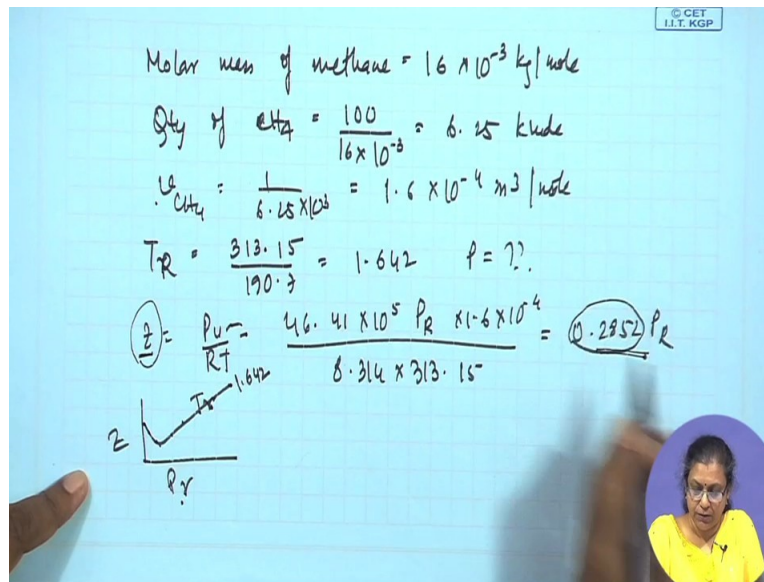 © CET
I.I.T. KGP
Molar mass of methane = 16 × 10⁻³ kg/mole
Qty of CH4 = 100 / 16 × 10⁻³ = 6.25 kmole
v CH4 = 1 / 6.25 × 10³ = 1.6 × 10⁻⁴ m3/mole
TR = 313.15 / 190.7 = 1.642 P = ??
z = Pv / RT = 46.41 × 10⁵ PR × 1.6 × 10⁻⁴ / 8.314 × 313.15 = 0.2852 PR
Tr 1.642
Z
Pr